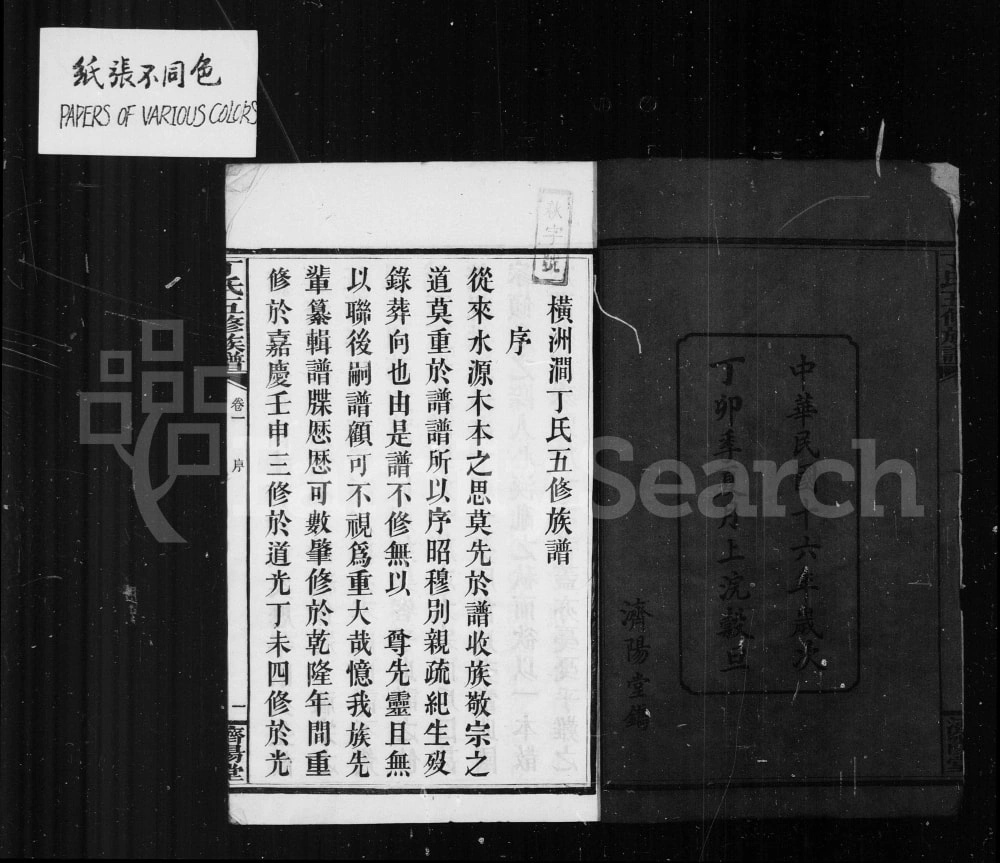 紙張不同色
PAPERS OF VARIOUS COLORS
中華民國十六年歲次
丁卯年
月上浣穀旦
濟陽堂鐫
字號
橫洲澗丁氏五修族譜
序
從來水源木本之思莫先於譜收族敬宗之
道莫重於譜譜所以序昭穆別親疏紀生歿
錄葬向也由是譜不修無以 尊先靈且無
以聯後嗣譜顧可不視爲重大哉憶我族先
輩纂輯譜牒歷歷可數肇修於乾隆年間重
修於嘉慶壬申三修於道光丁未四修於光
丁氏五修族譜
卷一
序
一
濟陽堂
Search